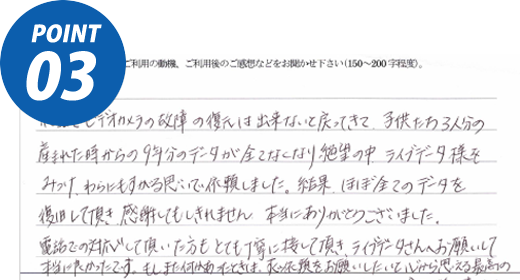 POINT
03
ご利用の動機、ご利用後のご感想などをお聞かせ下さい(150〜200字程度)。
ビデオカメラの故障の復元は出来ないと戻ってきて、子供たち3人分の
産まれた時からの9年分のデータが全てなくなり絶望の中 ライブデータ様を
みつけ、わらにもすがる思いで依頼しました。結果、ほぼ全てのデータを
復旧して頂き 感謝してもしきれません 本当にありがとうございました。
電話での対応して頂いた方も とても丁寧に接して頂き ライブデータさんへお願いして
本当に良かったです。もしまた何かあったときは、又